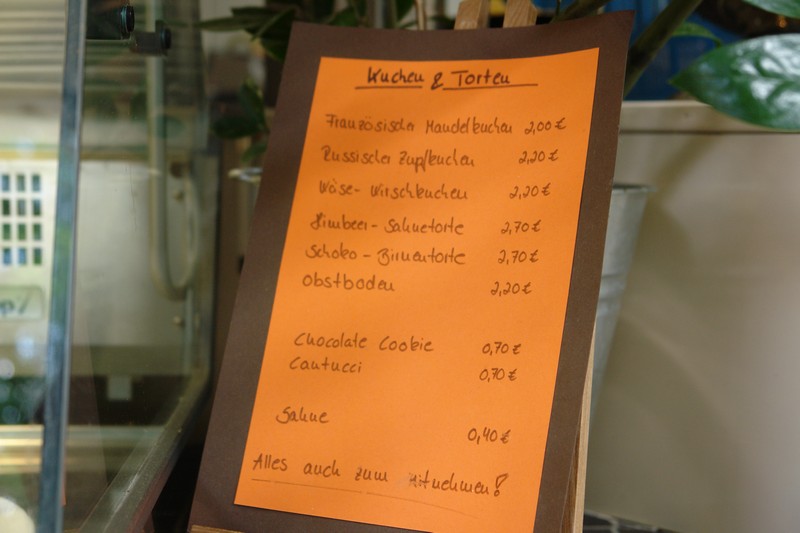 Kuchen & Torten
Französischer Mandelkuchen 2,00 €
Russischer Zupfkuchen 2,20 €
Käse-Kirschkuchen 2,20 €
Himbeer-Sahnetorte 2,70 €
Schoko-Birnentorte 2,70 €
Obstboden 2,20 €
Chocolate Cookie 0,70 €
Cantucci 0,70 €
Sahne 0,40 €
Alles auch zum Mitnehmen!